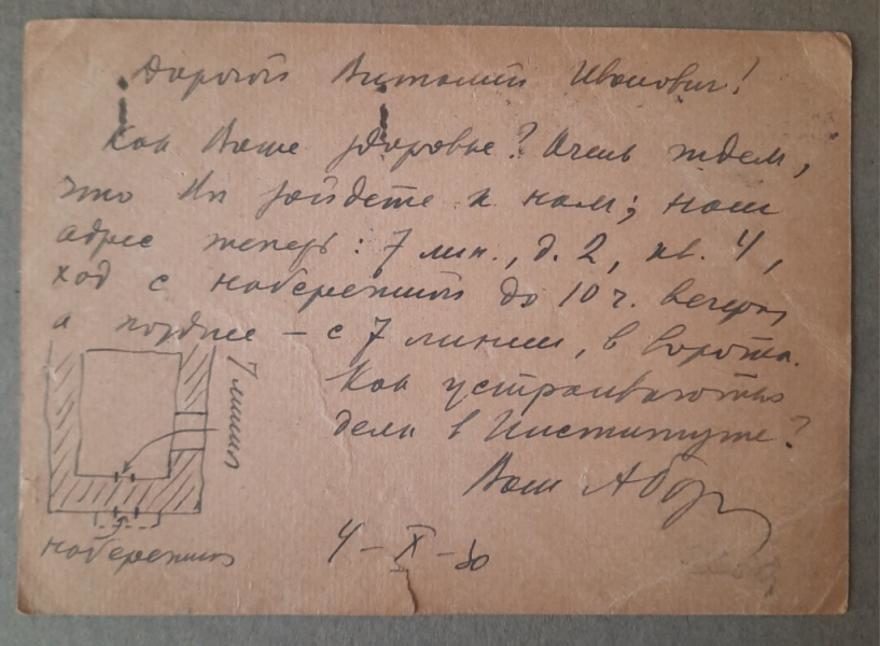 Дорогой Виталий Иванович!
Как Ваше здоровье? Очень ждем,
что Вы зайдете к нам; наш
адрес теперь: 7 лин., д. 2, кв. 4,
ход с набережной до 10 ч. вечера,
а позднее – с 7 линии, в ворота.
Как устраиваются
дела в Институте?
Ваш
4 – X –
7 линия
набережная